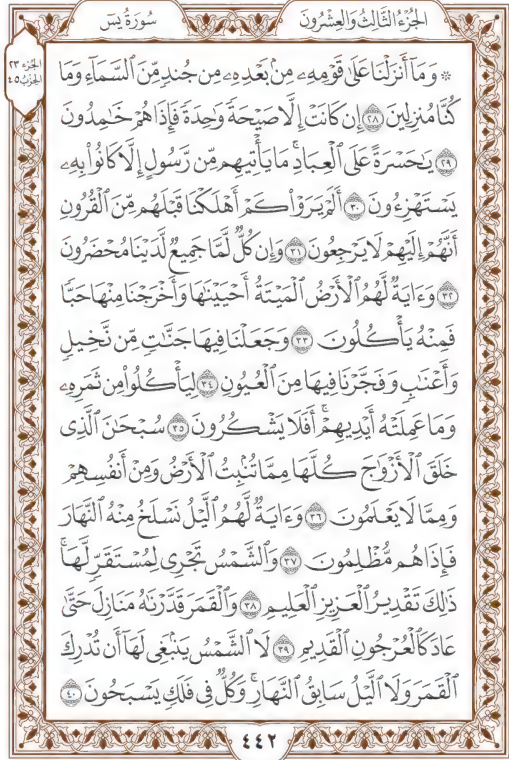 الجُزْءُ الثَّالِثُ وَالعِشْرُونَ
سُورَةُ يسٓ
الجُزْء ٢٣
الحِزْبُ ٤٥
۞ وَمَآ أَنزَلْنَا عَلَىٰ قَوْمِهِۦ مِنۢ بَعْدِهِۦ مِن جُندٍ مِّنَ ٱلسَّمَآءِ وَمَا
كُنَّا مُنزِلِينَ ٢٨ إِن كَانَتْ إِلَّا صَيْحَةً وَٰحِدَةً فَإِذَا هُمْ خَٰمِدُونَ
٢٩ يَٰحَسْرَةً عَلَى ٱلْعِبَادِۚ مَا يَأْتِيهِم مِّن رَّسُولٍ إِلَّا كَانُوا۟ بِهِۦ
يَسْتَهْزِءُونَ ٣٠ أَلَمْ يَرَوْا۟ كَمْ أَهْلَكْنَا قَبْلَهُم مِّنَ ٱلْقُرُونِ
أَنَّهُمْ إِلَيْهِمْ لَا يَرْجِعُونَ ٣١ وَإِن كُلٌّ لَّمَّا جَمِيعٌ لَّدَيْنَا مُحْضَرُونَ
٣٢ وَءَايَةٌ لَّهُمُ ٱلْأَرْضُ ٱلْمَيْتَةُ أَحْيَيْنَٰهَا وَأَخْرَجْنَا مِنْهَا حَبًّا
فَمِنْهُ يَأْكُلُونَ ٣٣ وَجَعَلْنَا فِيهَا جَنَّٰتٍ مِّن نَّخِيلٍ
وَأَعْنَٰبٍ وَفَجَّرْنَا فِيهَا مِنَ ٱلْعُيُونِ ٣٤ لِيَأْكُلُوا۟ مِن ثَمَرِهِۦ
وَمَا عَمِلَتْهُ أَيْدِيهِمْۚ أَفَلَا يَشْكُرُونَ ٣٥ سُبْحَٰنَ ٱلَّذِى
خَلَقَ ٱلْأَزْوَٰجَ كُلَّهَا مِمَّا تُنۢبِتُ ٱلْأَرْضُ وَمِنْ أَنفُسِهِمْ
وَمِمَّا لَا يَعْلَمُونَ ٣٦ وَءَايَةٌ لَّهُمُ ٱلَّيْلُ نَسْلَخُ مِنْهُ ٱلنَّهَارَ
فَإِذَا هُم مُّظْلِمُونَ ٣٧ وَٱلشَّمْسُ تَجْرِى لِمُسْتَقَرٍّ لَّهَاۚ
ذَٰلِكَ تَقْدِيرُ ٱلْعَزِيزِ ٱلْعَلِيمِ ٣٨ وَٱلْقَمَرَ قَدَّرْنَٰهُ مَنَازِلَ حَتَّىٰ
عَادَ كَٱلْعُرْجُونِ ٱلْقَدِيمِ ٣٩ لَا ٱلشَّمْسُ يَنۢبَغِى لَهَآ أَن تُدْرِكَ
ٱلْقَمَرَ وَلَا ٱلَّيْلُ سَابِقُ ٱلنَّهَارِۚ وَكُلٌّ فِى فَلَكٍ يَسْبَحُونَ ٤٠
٤٤٢